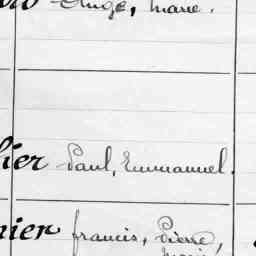 Ange, Marie.
lier Paul, Emmanuel.
nier Francis, Pierre,